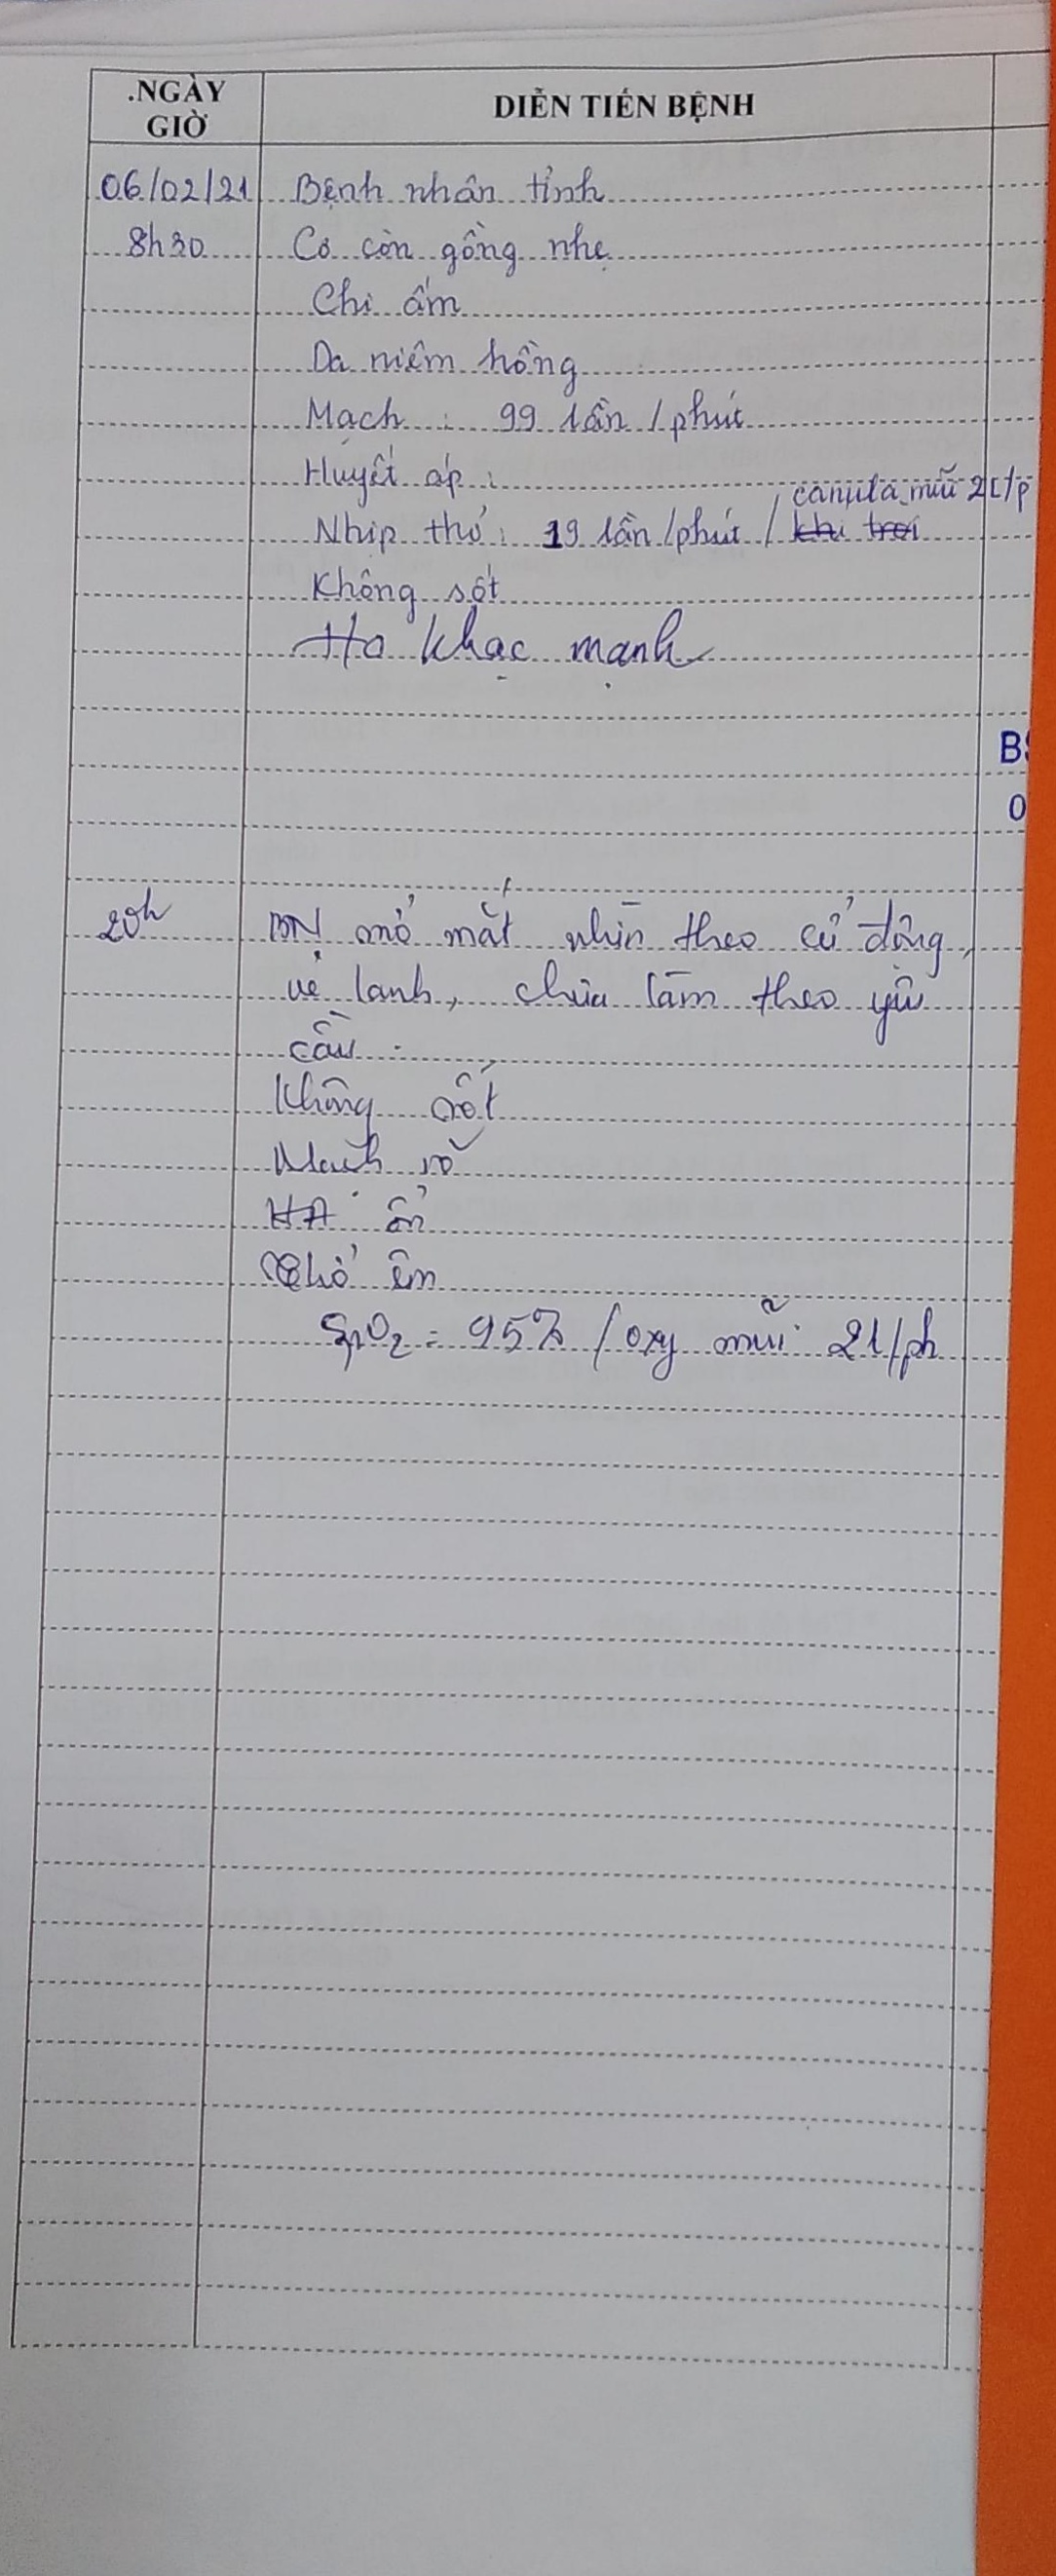 .NGÀY
GIỜ
DIỄN TIẾN BỆNH
06/02/21 Bệnh nhân tỉnh
8h30 Cơ còn gồng nhẹ
Chi ấm
Da niêm hồng
Mạch : 99 lần /phút
Huyết áp :
canula mũi 2L/p
Nhịp thở : 19 lần/phút / khí trời
Không sốt
Ho khạc mạnh
BS
0
20h BN mở mắt nhìn theo cử động,
vẻ lanh, chưa làm theo yêu
cầu.
Không sốt
Mạch rõ
HA ổn
Thở êm
SpO2 = 95% / oxy mũi 2l/ph